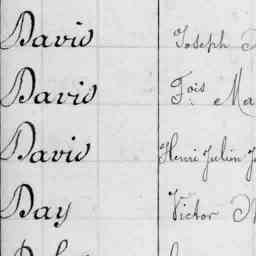 David Joseph
David Fois Ma
David Henri Julien J
Day Victor